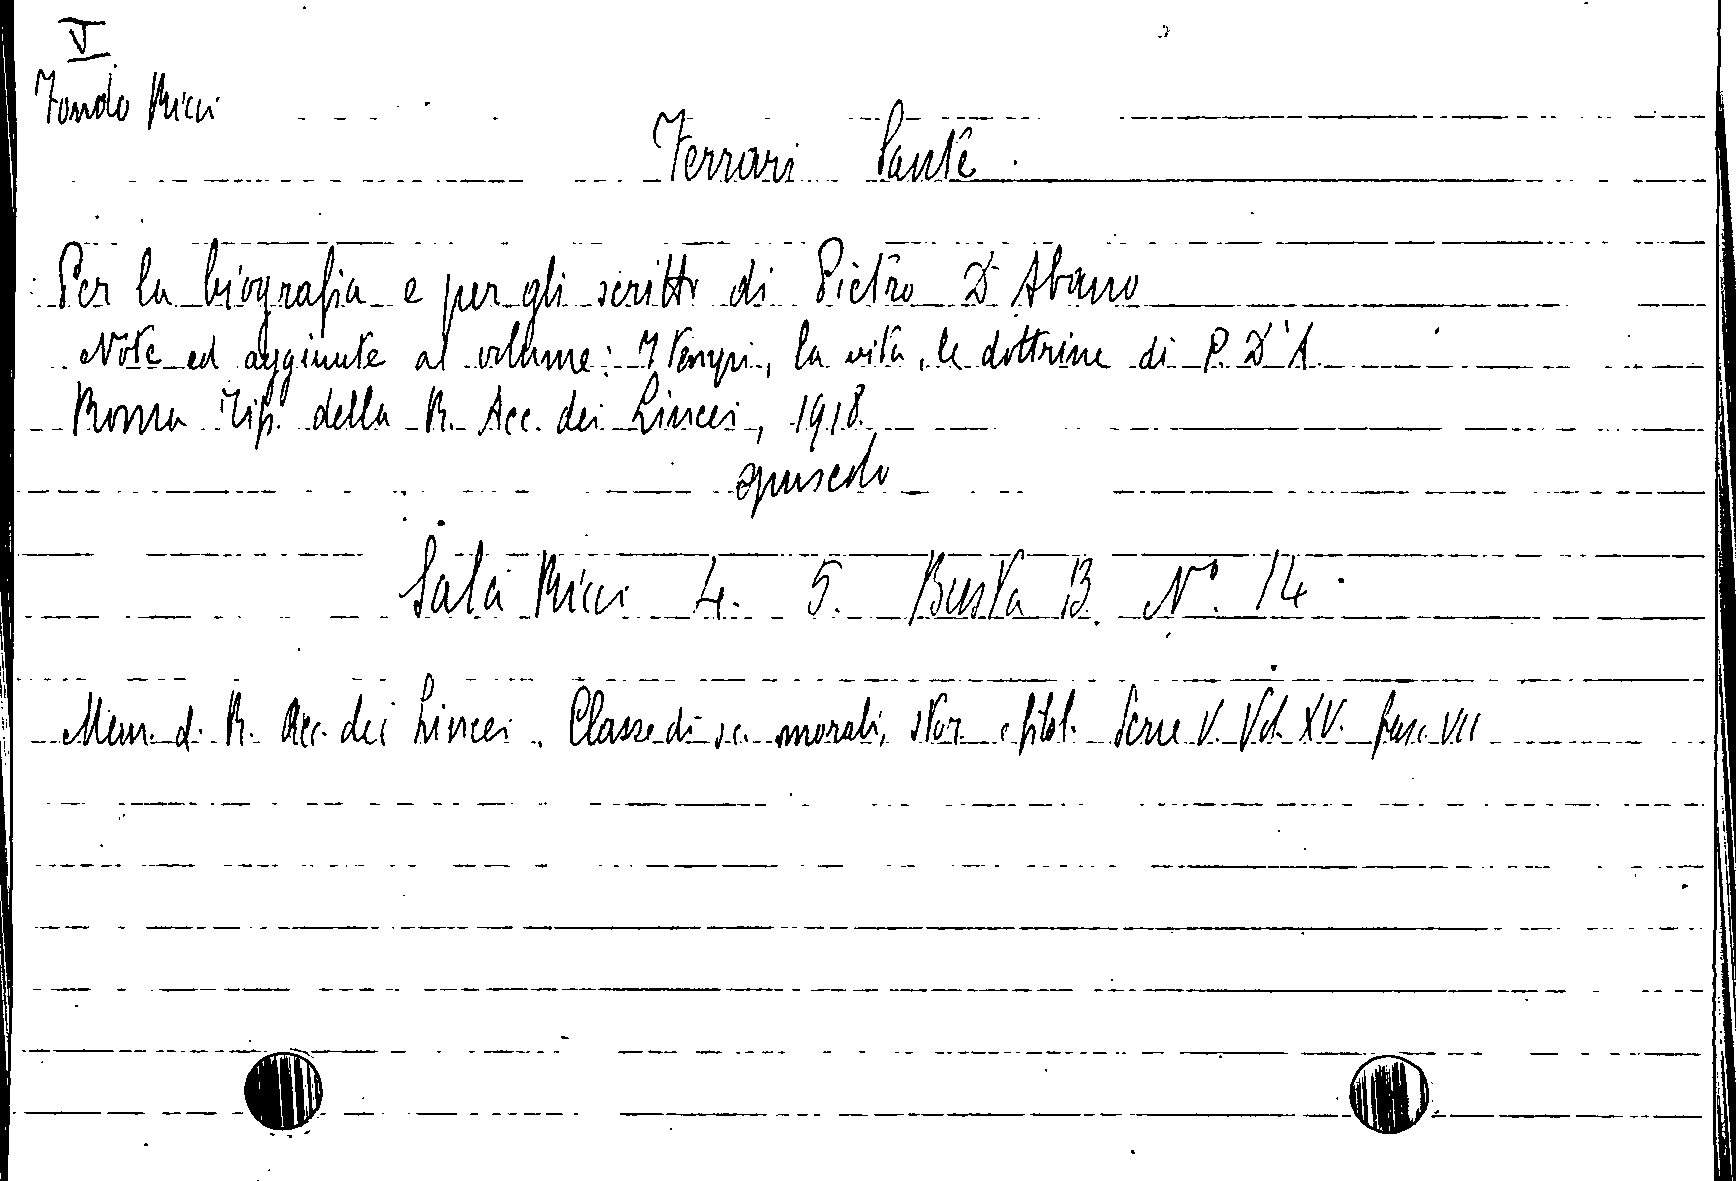 V
Fondo Ricci
Ferrari Sante.
Per la biografia e per gli scritti di Pietro D'Abano
Note ed aggiunte al volume: I tempi, la vita, le dottrine di P. D'A.
Roma Tip. della R. Acc. dei Lincei, 1918
opuscolo
Sala Ricci 4. 5. Busta B. N° 14.
Mem. d. R. Acc. dei Lincei. Classe di sc. morali, stor. e filol. Serie V. Vol. XV. fasc. VII